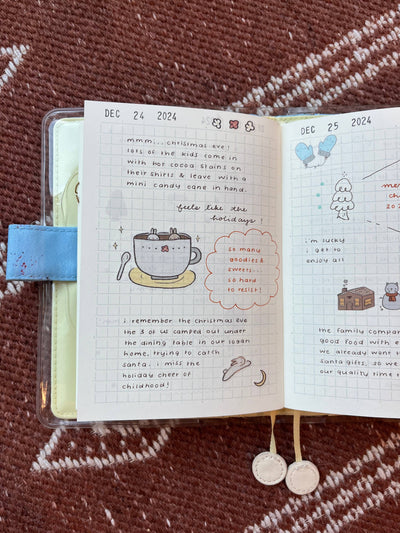 DEC 24 2024
mmm...christmas eve!
lots of the kids come in
with hot cocoa stains on
their shirts & leave with a
mini candy cane in hand.
feels like the
holidays!
so many
goodies &
sweets...
so hard
to resist!
i remember the christmas eve
the 3 of us camped out under
the dining table in our logan
home, trying to catch
santa. i miss the
holiday cheer of
childhood!
DEC 25 2024
me
chris
20 2
i'm lucky
i get to
enjoy all
the family compan
good food with e
we already went t
santa gifts, so w
our quality time t